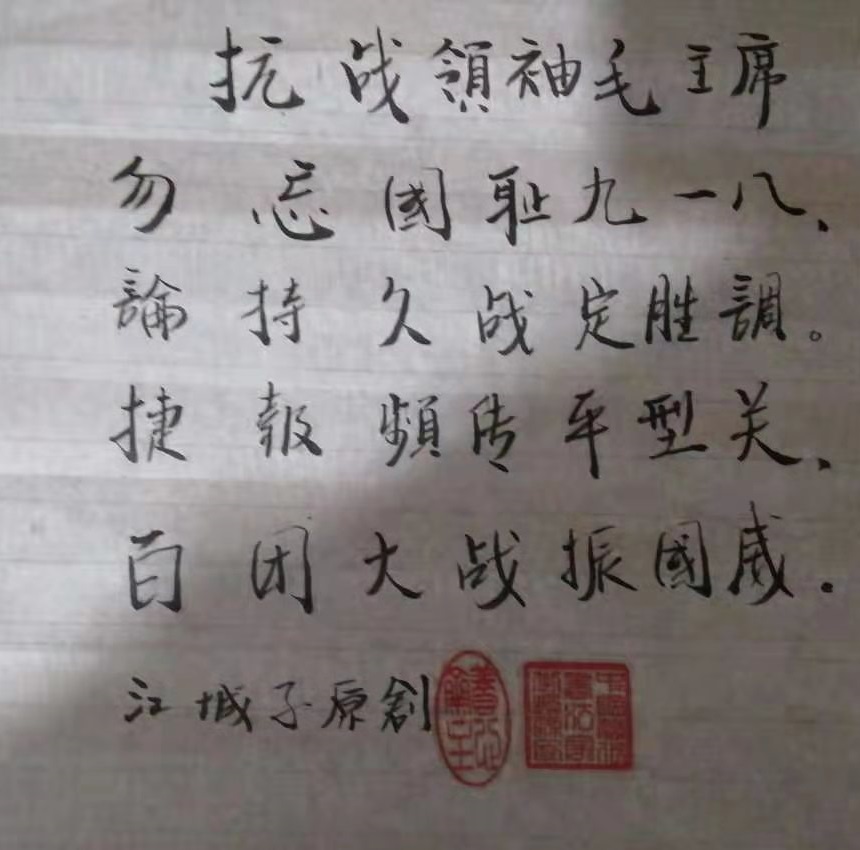 抗战領袖毛主席
勿忘國耻九一八、
論持久战定胜調。
捷報頻传平型关、
百团大战振國威.
江城子原創